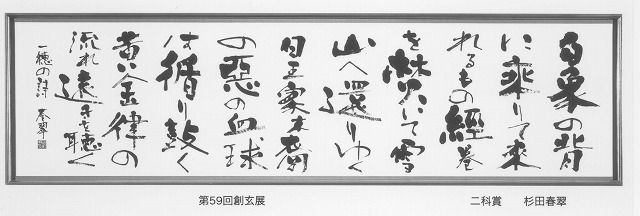 白象の背
に乘りて来
れるもの經巻
を焚いて雪
山へ還りゆく
日王家末裔
の惡の血球
は循り鼓く
黄金律の
流れ遠きを聴く
一穂の詩 春翠
第59回創玄展
二科賞 杉田春翠